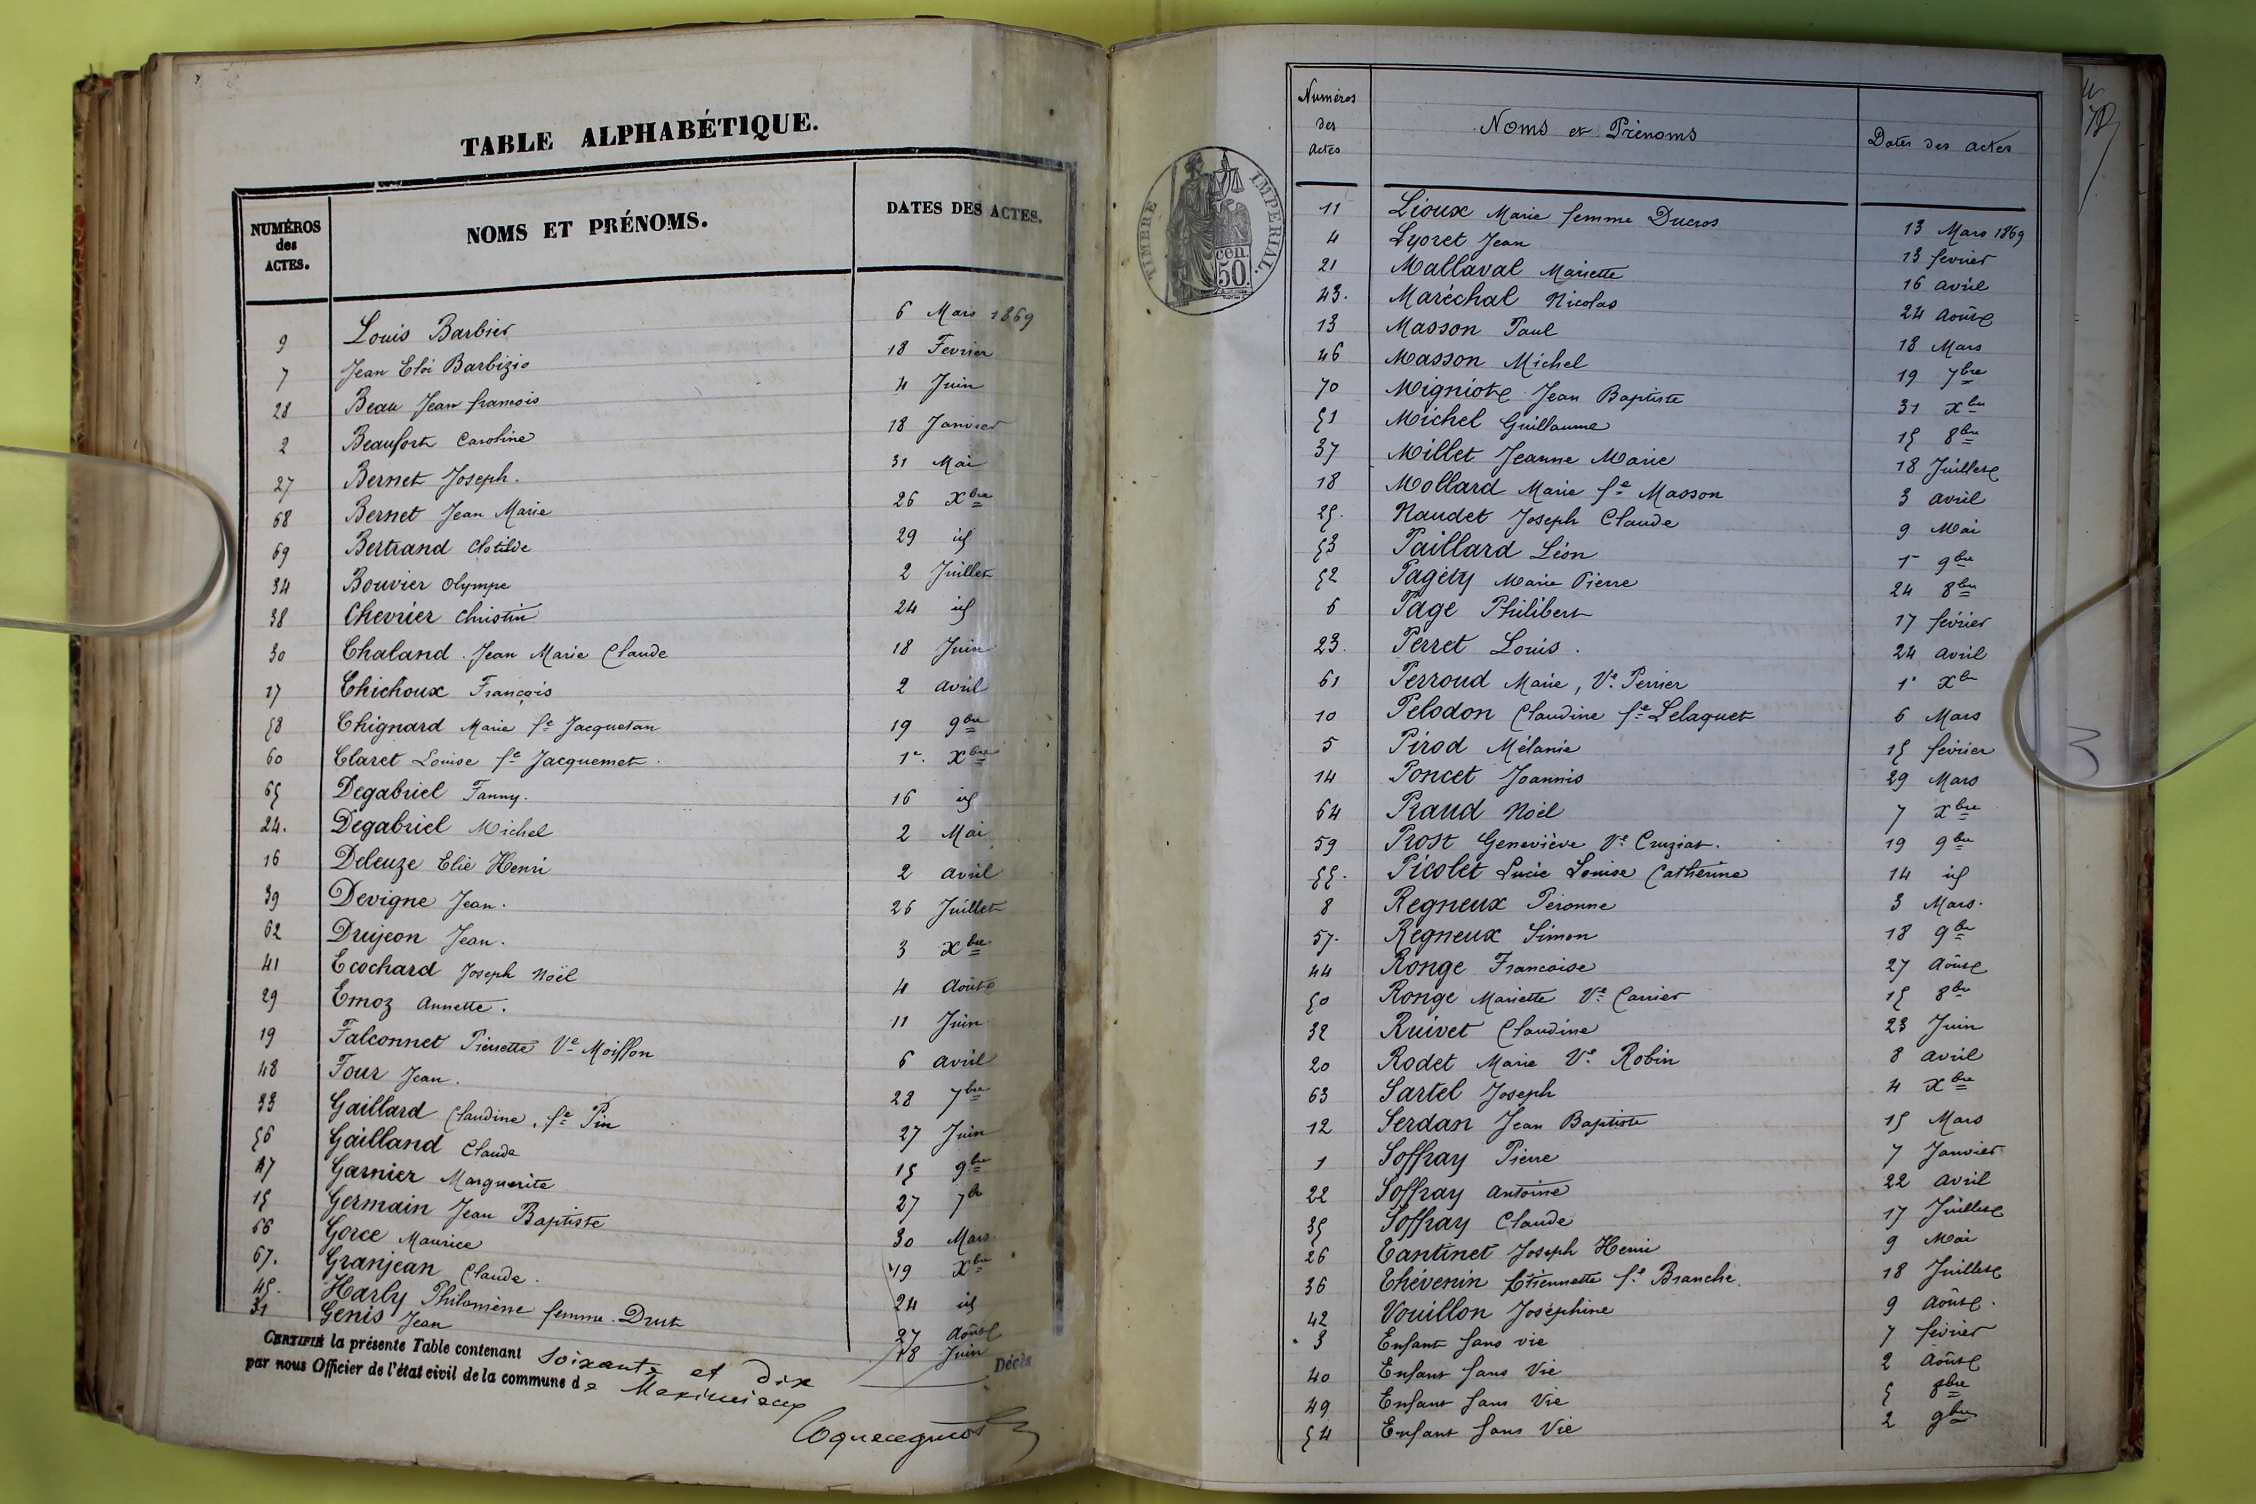 TABLE ALPHABÉTIQUE.
NUMÉROS des ACTES. NOMS ET PRÉNOMS. DATES DES ACTES.
9 Louis Barbier 6 Mars 1869
7 Jean Eloi Barbizio 18 Fevrier
28 Beau Jean francois 4 Juin
2 Beaufort Caroline 18 Janvier
27 Bernet Joseph. 31 Mai
68 Bernet Jean Marie 26 Xbre
69 Bertrand Clotilde 29 id
34 Bouvier Olympe 2 Juillet
38 Chevrier Christin 24 id
30 Chaland Jean Marie Claude 18 Juin
17 Chichoux François 2 avril
58 Chignard Marie fe Jacquetan 19 9bre
60 Claret Louise fe Jacquemet. 1er. Xbre
65 Degabriel Fanny. 16 id
24. Degabriel Michel 2 Mai
16 Deleuze Elie Henri 2 avril
39 Devigne Jean. 26 Juillet
62 Drujeon Jean. 3 Xbre
41 Ecochard Joseph Noël 4 Août
29 Emoz Annette. 11 Juin
19 Falconnet Pierrette Ve Moisson 6 avril
48 Four Jean. 28 7bre
33 Gaillard Claudine, fe Pin 27 Juin
56 Gailland Claude 15 9bre
47 Garnier Marguerite 27 7br
15 Germain Jean Baptiste 30 Mars
66 Gorce Maurice 19 Xbre
67. Granjean Claude. 24 id
45. Harly Philomène femme Drut 27 Août
31 Genis Jean 18 Juin
CERTIFIÉ la présente Table contenant soixante et dix Décès
par nous Officier de l'état civil de la commune de Meximieux
TIMBRE IMPERIAL.
50 cen.
Numéros des actes Noms et Prénoms Dates des actes
11 Lioux Marie femme Ducros 13 Mars 1869
4 Lyoret Jean 13 fevrier
21 Mallaval Mariette 16 avril
43. Maréchal Nicolas 24 Août
13 Masson Paul 18 Mars
46 Masson Michel 19 7bre
70 Migniot Jean Baptiste 31 Xbre
51 Michel Guillaume 15 8bre
37 Millet Jeanne Marie 18 Juillet
18 Mollard Marie fe Masson 3 avril
25. Naudet Joseph Claude 9 Mai
53 Paillard Léon 1er 9bre
52 Pagéty Marie Pierre 24 8bre
6 Page Philibert 17 février
23. Perret Louis. 24 avril
61 Perroud Marie, Ve Perrier 1er Xbre
10 Pelodon Claudine fe Lelaquet 6 Mars
5 Pirod Mélanie 15 février
14 Poncet Joannis 29 Mars
64 Praud Noël 7 Xbre
59 Prost Geneviève Ve Cruziat. 19 9bre
55. Picolet Lucie Louise Catherine 14 id
8 Regneux Péronne 3 Mars.
57. Regneux Simon 18 9bre
44 Ronge Francoise 27 Août
50 Ronge Mariette Ve Carrier 15 8bre
32 Ruivet Claudine 23 Juin
20 Rodet Marie Ve Robin 8 avril
63 Sartel Joseph 4 Xbre
12 Serdan Jean Baptiste 15 Mars
1 Soffray Pierre 7 Janvier
22 Soffray antoine 22 avril
35 Soffray Claude 17 Juillet
26 Tantinet Joseph Henri 9 Mai
36 Thévenin Etiennette fe Branche. 18 Juillet
42 Vouillon Joséphine 9 Août.
3 Enfant sans vie 7 février
40 Enfant sans Vie 2 Août
49 Enfant sans Vie 5 8bre
54 Enfant sans Vie 2 9bre